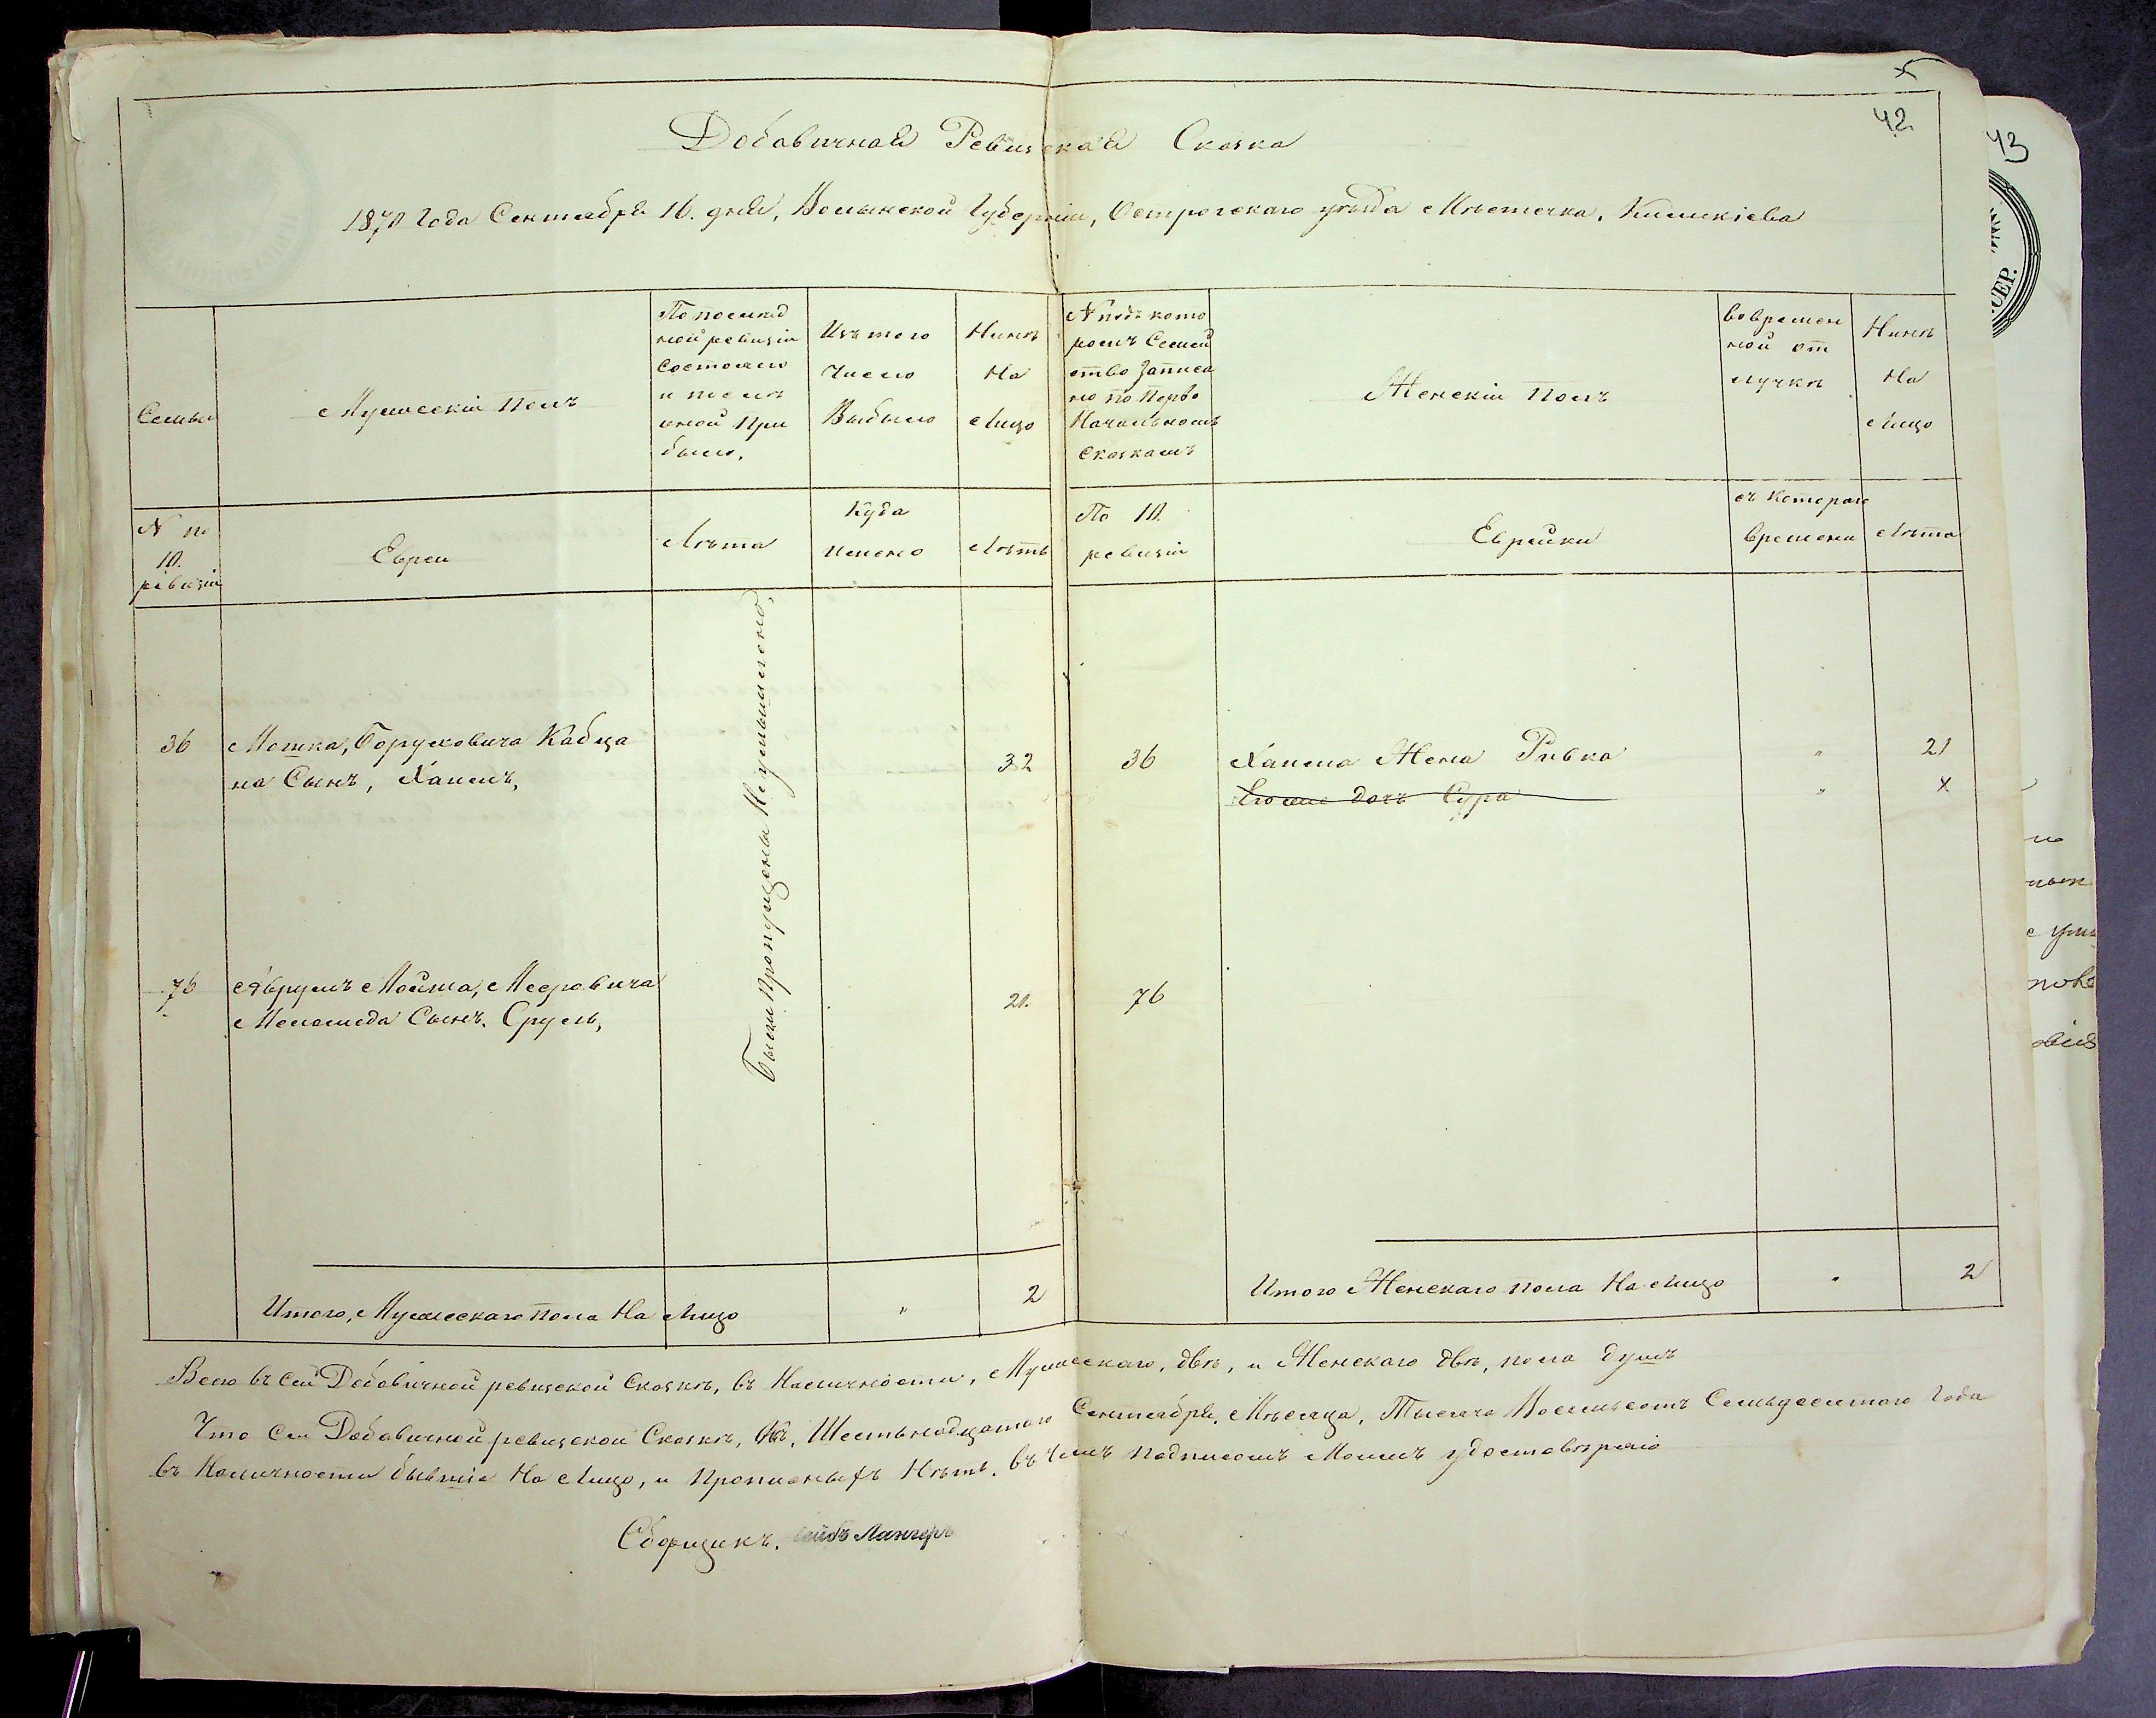 42
43
Добавичная Ревизская Сказка
1870 Года Сентября 16. дня, Волынской Губерніи, Острогскаго уѣзда Мѣстечка, Киликіева
Семьи
Мужескій полъ
По послѣд
ней ревизіи
Состояло
и послѣ
оной При
было.
Изъ того
Число
Выбыло
Нынѣ
На
Лицо
N подъ кото
ромъ Семей
ство Записа
но по Перво
Начальномъ
Сказкамъ
Женскій полъ
Во времен
ной от
лучкѣ
Нынѣ
На
Лицо
N по
10.
ревизіи
Евреи
Лѣта
Куда
именно
Лѣтъ
По 10.
ревизіи
Еврейки
съ Котораго
времени
Лѣта
Были Пропущены Неумышленно,
36
Мошка, Боруховича Кабца
на Сынъ, Хаимъ,
32
36
Хаима Жена Ривка
21
Его же дочь Сура
X
76
Аврумъ Мойша, Мееровича
Меламеда Сынъ. Сруль,
21.
76
Итого, Мужескаго Пола На Лицо
2
Итого Женскаго пола На Лицо
2
Всего въ Сей Добавичной ревизской Сказкѣ, въ Наличности, Мужескаго, двѣ, и Женскаго двѣ, пола душъ
Что Сей Добавичной ревизской Сказкѣ, Къ, Шестьнадцатаго Сентября, Мѣсяца, Тысяча Восемьсотъ Семьдесятаго Года
въ Наличности бывшіе На Лицо, и Прописныхъ Нѣтъ. въ Чемъ подписомъ Моимъ удостовѣряю
Сборщикъ. Лейбъ Лангеръ
СЕР.